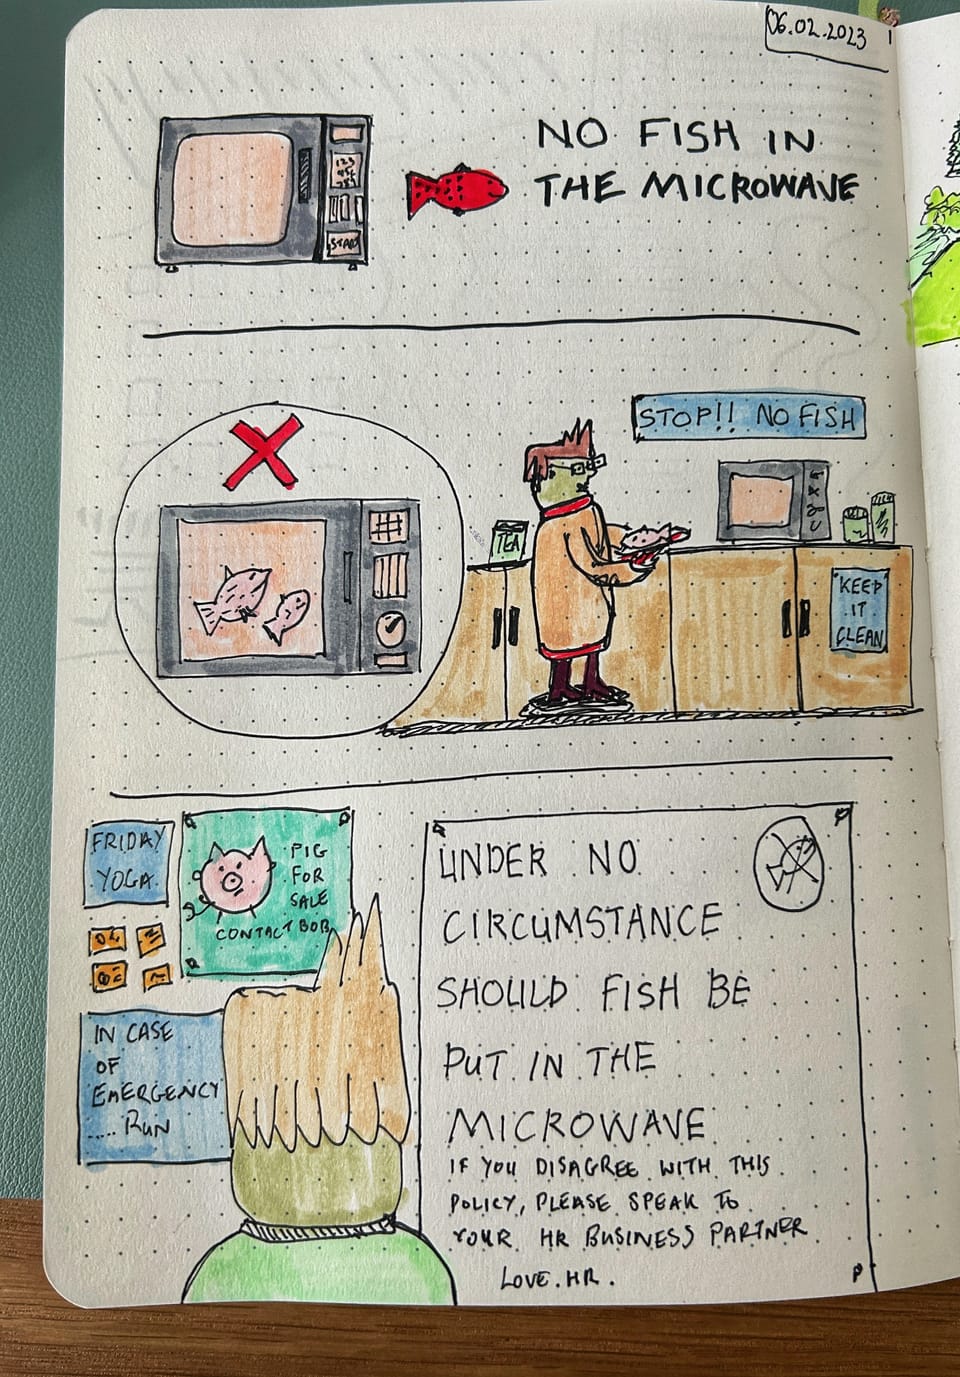 06.02.2023
NO FISH IN
THE MICROWAVE
123
456
789
START
STOP!! NO FISH
TEA
KEEP
IT
CLEAN
FRIDAY
YOGA
PIG
FOR
SALE
CONTACT BOB
IN CASE
OF
EMERGENCY
..... RUN
UNDER NO
CIRCUMSTANCE
SHOULD FISH BE
PUT IN THE
MICROWAVE
IF YOU DISAGREE WITH THIS
POLICY, PLEASE SPEAK TO
YOUR HR BUSINESS PARTNER
LOVE. HR.